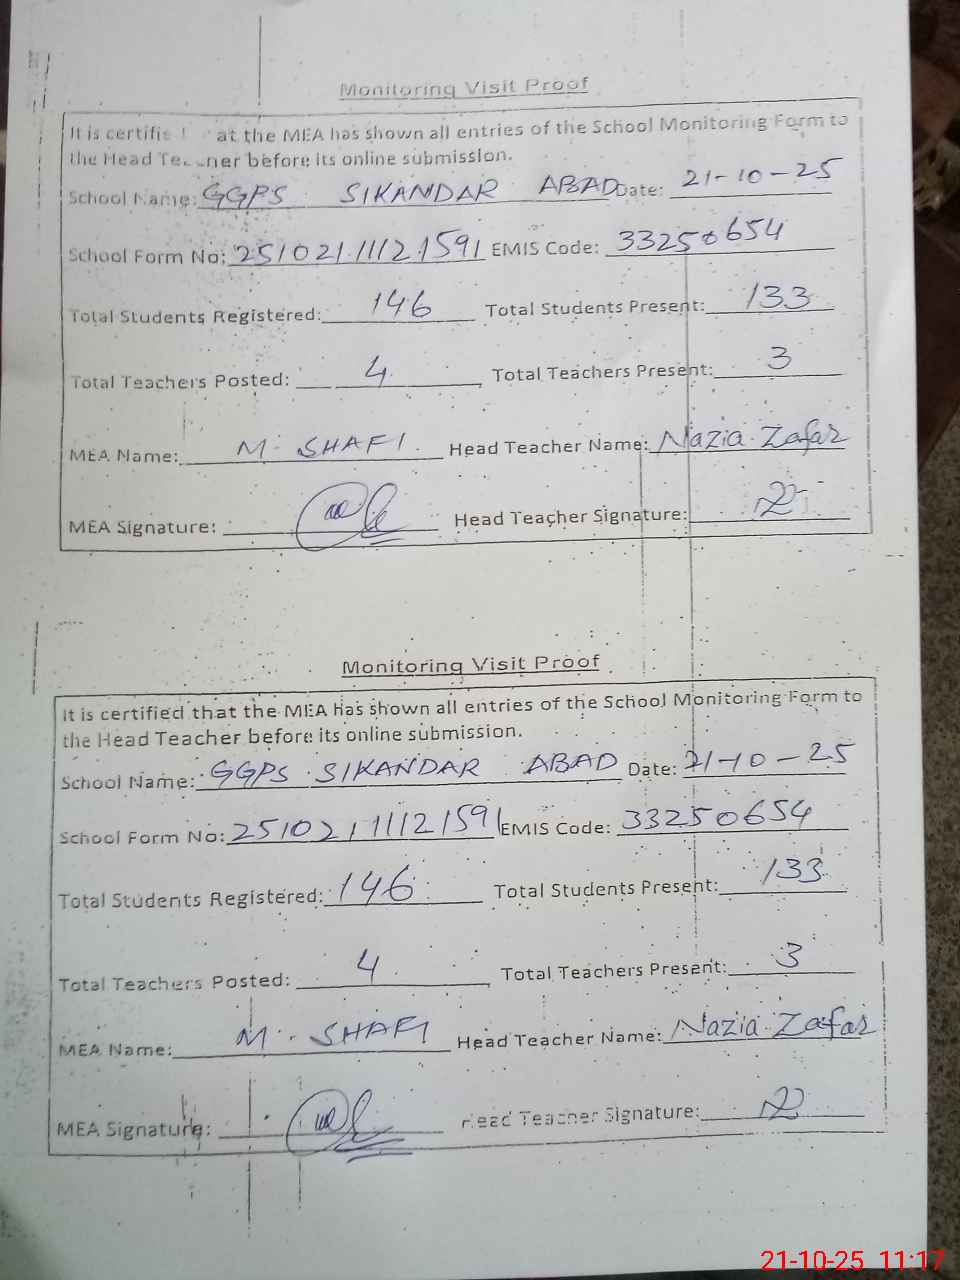 Monitoring Visit Proof
It is certifie at the MEA has shown all entries of the School Monitoring Form to
the Head Teacher before its online submission.
School Name: GGPS SIKANDAR ABAD Date: 21-10-25
School Form No: 251021.1112.1591 EMIS Code: 33250654
Total Students Registered: 146 Total Students Present: 133
Total Teachers Posted: 4 Total Teachers Present: 3
MEA Name: M. SHAFI. Head Teacher Name: Nazia Zafar
MEA Signature: Head Teacher Signature:
Monitoring Visit Proof
It is certified that the MEA has shown all entries of the School Monitoring Form to
the Head Teacher before its online submission.
School Name: GGPS SIKANDAR ABAD Date: 21-10-25
School Form No: 25102111121591 EMIS Code: 33250654
Total Students Registered: 146 Total Students Present: 133
Total Teachers Posted: 4 Total Teachers Present: 3
MEA Name: M. SHAFI Head Teacher Name: Nazia Zafar
MEA Signature: Head Teacher Signature:
21-10-25 11:17